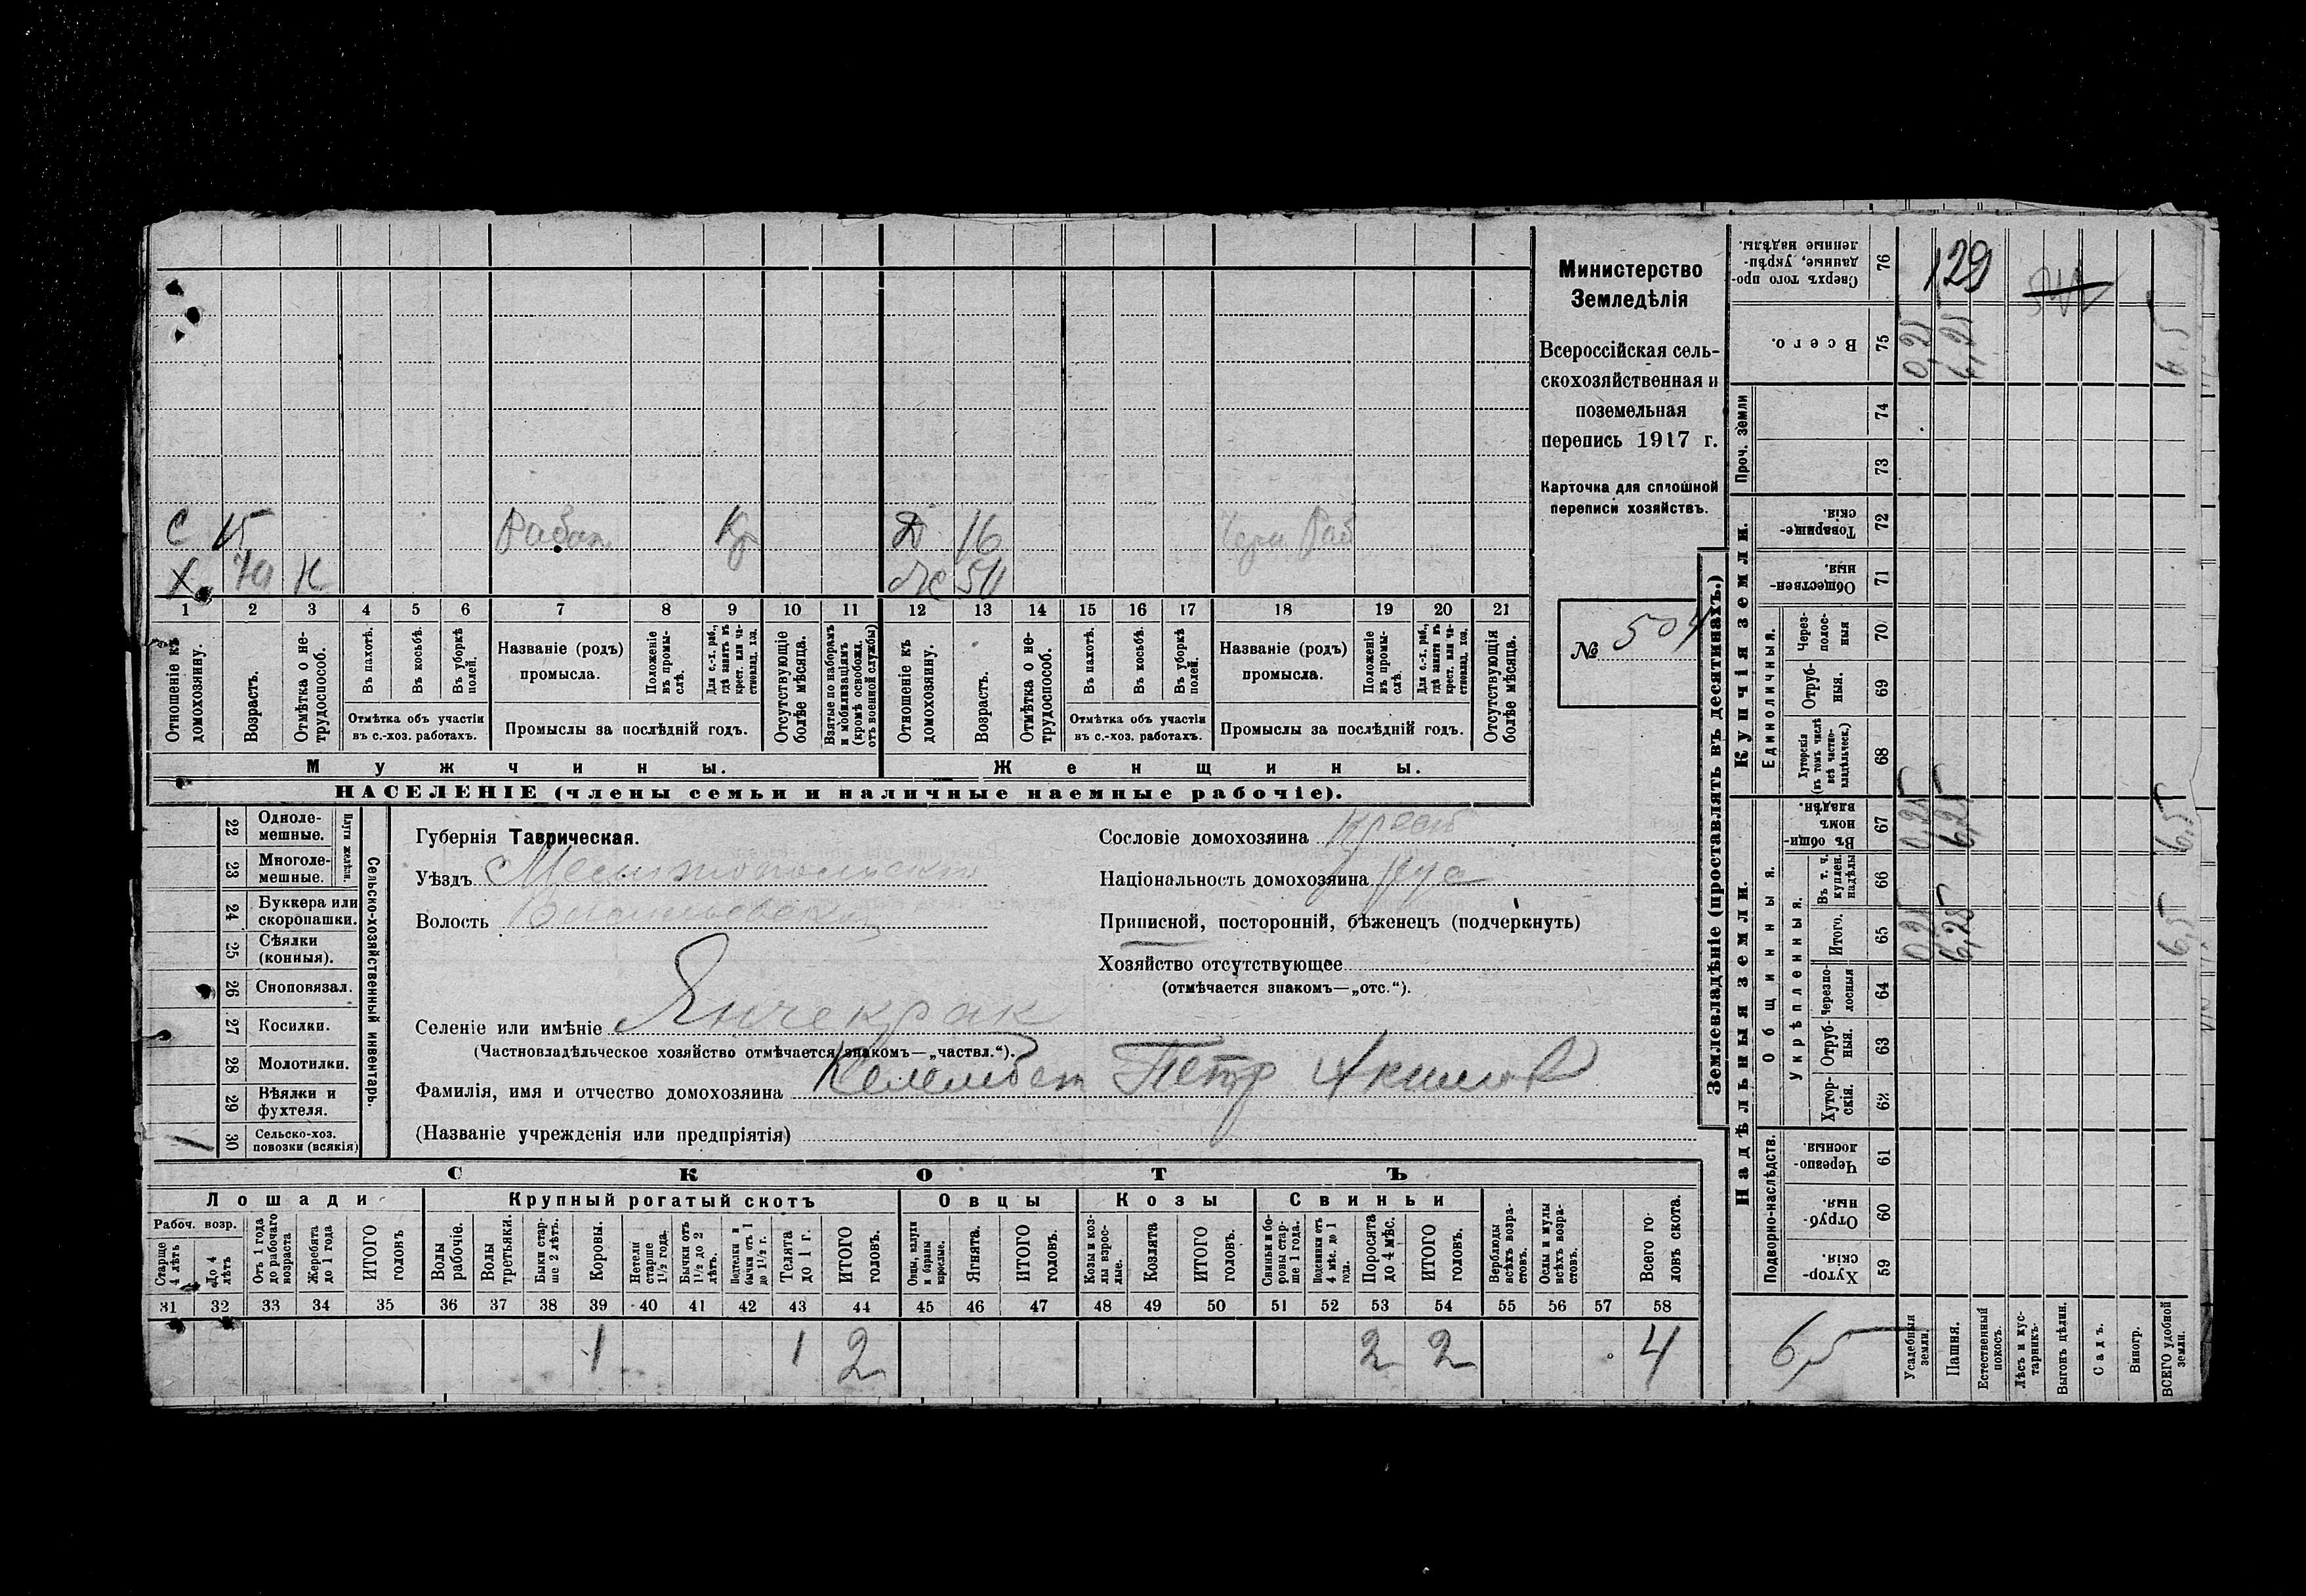 Министерство
Земледѣлія
Всероссійская сель-
скохозяйственная и
поземельная
перепись 1917 г.
Карточка для сплошной
переписи хозяйствъ.
№ 504
С 15 Работ. Кр Д 16 Раб
Х 70 Н Ж 50
1 2 3 4 5 6 7 8 9 10 11 12 13 14 15 16 17 18 19 20 21
Отношеніе къ домохозяину.
Возрастъ.
Отмѣтка о не-трудоспособ.
Въ пахотѣ.
Въ косьбѣ.
Въ уборкѣ полей.
Отмѣтка объ участіи
въ с.-хоз. работахъ.
Названіе (родъ)
промысла.
Положеніе въ промы-слѣ.
Для с.-х. раб., гдѣ занятъ въ крест. или ча-стновлад. хоз.
Промыслы за послѣдній годъ.
Отсутствующіе болѣе мѣсяца.
Взятые по наборамъ и мобилизаціямъ (кромѣ освобожд. отъ военной службы)
Отношеніе къ домохозяину.
Возрастъ.
Отмѣтка о не-трудоспособ.
Въ пахотѣ.
Въ косьбѣ.
Въ уборкѣ полей.
Отмѣтка объ участіи
въ с.-хоз. работахъ.
Названіе (родъ)
промысла.
Положеніе въ промы-слѣ.
Для с.-х. раб., гдѣ занята въ крест. или ча-стновлад. хоз.
Промыслы за послѣдній годъ.
Отсутствующія болѣе мѣсяца.
Мужчины.
Женщины.
НАСЕЛЕНІЕ (члены семьи и наличные наемные рабочіе).
22 Одноле-мешные.
23 Многоле-мешные.
Плуги желѣзн.
24 Буккера или скоропашки.
25 Сѣялки (конныя).
26 Сноповязал.
27 Косилки.
28 Молотилки.
29 Вѣялки и фухтеля.
1 30 Сельско-хоз. повозки (всякія)
Сельско-хозяйственный инвентарь.
Губернія Таврическая.
Уѣздъ Мелитопольский
Волость Васильевская
Селеніе или имѣніе Янчекрак
(Частновладѣльческое хозяйство отмѣчается знакомъ—„частвл.“).
Фамилія, имя и отчество домохозяина Келембет Петр Акимов
(Названіе учрежденія или предпріятія)
Сословіе домохозяина Крест
Національность домохозяина
Приписной, посторонній, бѣженецъ (подчеркнуть)
Хозяйство отсутствующее
(отмѣчается знакомъ—„отс.“).
СКОТЪ
Лошади
Крупный рогатый скотъ
Овцы
Козы
Свиньи
Рабоч. возр.
Старше 4 лѣтъ
До 4 лѣтъ
Отъ 1 года до рабочаго возраста
Жеребята до 1 года
ИТОГО головъ
Волы рабочіе.
Волы третьяки.
Быки стар-ше 2 лѣтъ.
Коровы.
Нетели старше 1½ года.
Бычки отъ 1½ до 2 лѣтъ.
Подтелки и бычки отъ 1 до 1½ г.
Телята до 1 г.
ИТОГО головъ.
Овцы, валухи и бараны взрослые.
Ягнята.
ИТОГО головъ.
Козы и коз-лы взрос-лые.
Козлята
ИТОГО головъ.
Свиньи и бо-ровы стар-ше 1 года.
Подсвинки отъ 4 мѣс. до 1 года.
Поросята до 4 мѣс.
ИТОГО головъ.
Верблюды всѣхъ возра-стовъ.
Ослы и мулы всѣхъ возра-стовъ.
Всего го-ловъ скота.
31 32 33 34 35 36 37 38 39 40 41 42 43 44 45 46 47 48 49 50 51 52 53 54 55 56 57 58
1 1 2 2 2 4
Землевладѣніе (проставлять въ десятинахъ.)
Надѣльныя земли.
Купчія земли.
Проч. земли
Подворно-наслѣдств.
Общинныя.
Укрѣпленныя.
Единоличныя.
Сверхъ того про-данные, укрѣп-ленные надѣлы. 76 129
Всего. 75 0,25 6,25 6,5
74
73
Товарище-скія 72
Обществен-ныя. 71
Через-полос-ныя 70
Отруб-ныя. 69
Хуторскія (въ томъ числѣ всѣ частно-владѣльческ.) 68
Въ общин-номъ владѣн. 67 0,25 6,25 6,5
Въ т. ч. куплен. надѣлы 66
Итого. 65 0,25 6,25 6,5
Черезпо-лосныя 64
Отруб-ныя. 63
Хутор-скія. 62
Черезпо-лосныя 61
Отруб-ныя. 60
Хутор-скія. 59
6,5
Усадебныя земли.
Пашня.
Естественный покосъ.
Лѣсъ и кус-тарникъ.
Выгонъ цѣлин.
Садъ.
Виногр.
ВСЕГО удобной земли.